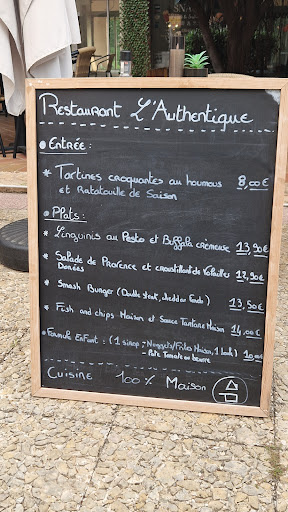 Restaurant L'Authentique
Entrée :
* Tartines croquantes au houmous 8,00€
et Ratatouille de Saison
Plats :
* Linguinis au Pesto et Buffala crémeuse 13,90€
* Salade de Provence et croustillant de Volailles 13,90€
Panées
* Smash Burger (Double steak, cheddar fondu) 13,50€
* Fish and chips Maison et Sauce Tartare Maison 14,00€
Formule Enfant : (1 sirop, Nuggets/Frites Maison, 1 boule) 10,00€
- Pate Tomate ou beurre
Cuisine 100% Maison